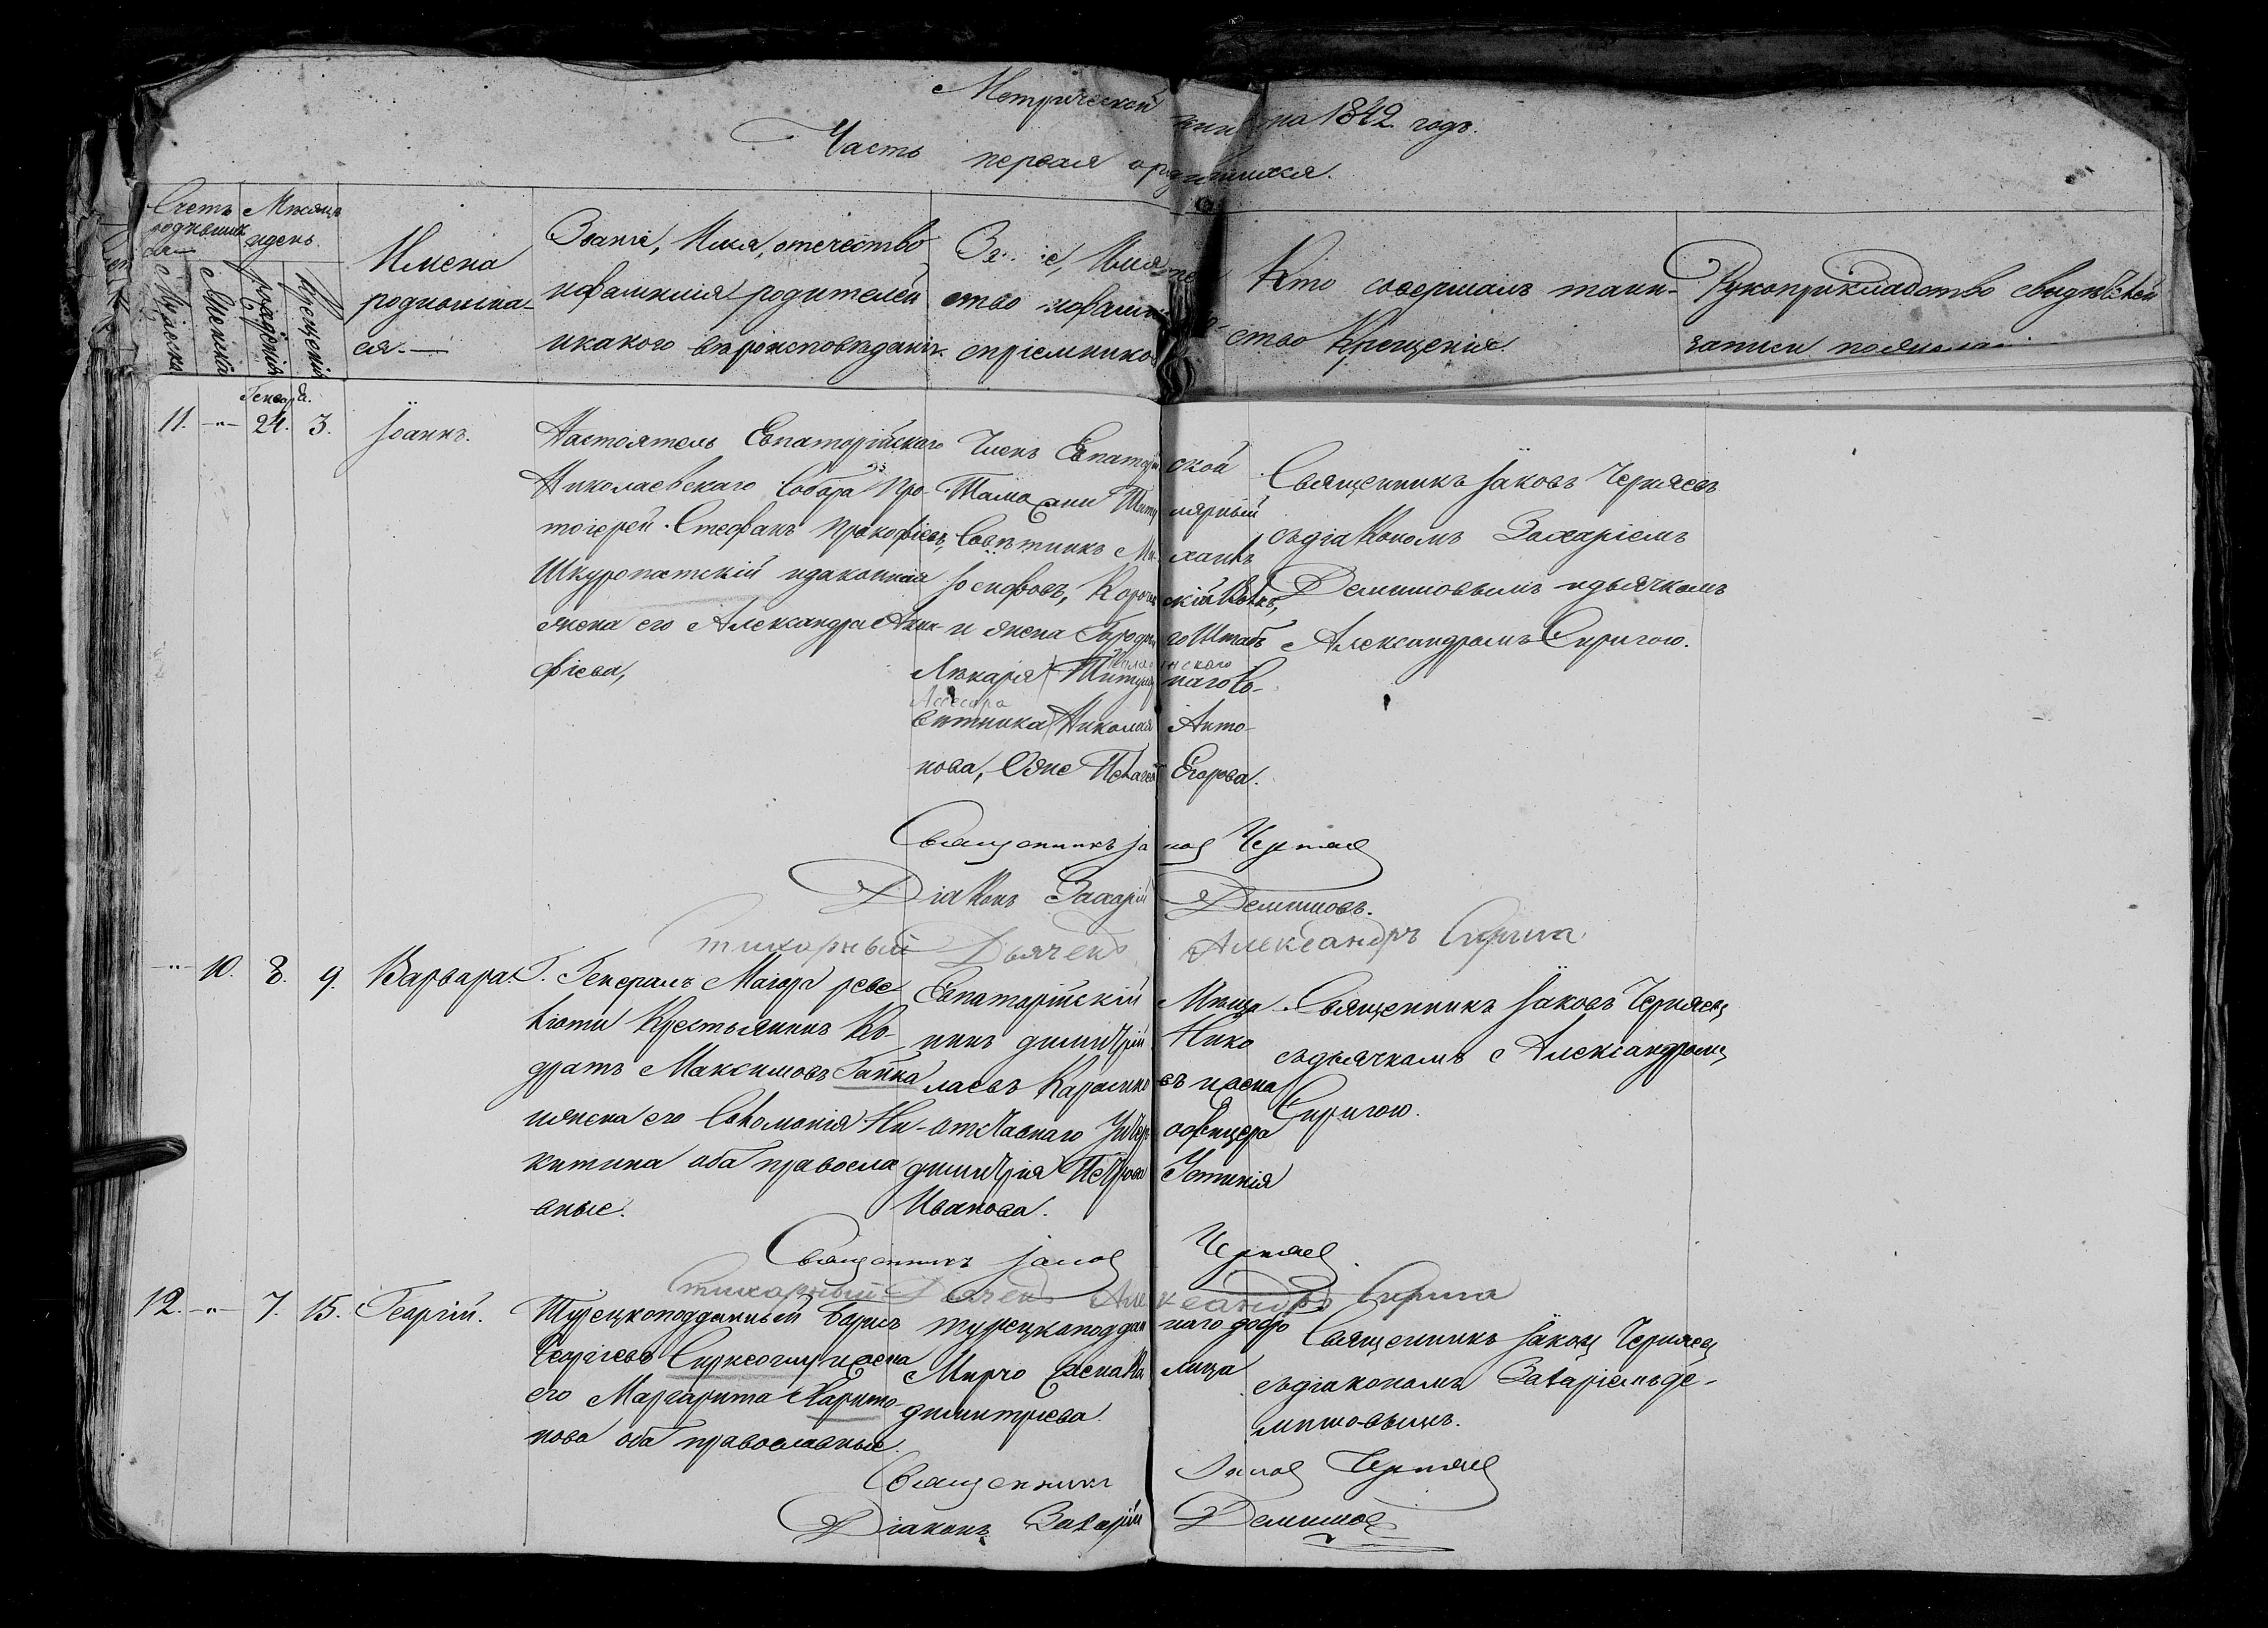 Метрической книги на 1842 годъ.
Часть первая о родившихся.
Счетъ родившихся
Мужеска
Женска
Мѣсяцъ и день
рожденія
Крещенія
Имена
родившиха-
ся.
Званіе, Имя, отечество
и фамилія родителей
и какого вѣроисповѣданія.
Званіе, Имя, отече-
ство и фамилія
воспріемниковъ
Кто совершалъ таин-
ство Крещенія.
Рукоприкладство свидѣтелей
записи
Генваря.
11. -"- 24. 3. Іоаннъ.
Настоятель Евпаторійскаго
Николаевскаго Собора Про-
тоіерей Стефанъ Прокофіевъ,
Шкуропатскій и законная
жена его Александра
фіева,
Членъ Евпаторійской
Таможни Титулярный
Совѣтникъ Михаилъ
Іосифовъ,
и жена Городоваго Штабъ
Лѣкаря Титулярнаго Со-
Ассесора
вѣтника Николая Анто-
нова, Пелагея Егорова.
Священникъ Іаковъ Черняевъ
съ діакономъ Захаріемъ
Демишовымъ и дьячкомъ
Александромъ Скригою.
Священникъ Іаковъ Черняевъ
Діаконъ Захарій Демишовъ.
Стихарный Дьячекъ Александръ Скрига
-"- 10. 8. 9. Варвара.
Г. Генералъ Маіора реве-
ліоти Крестьянинъ Ко-
дратъ Максимовъ Гайка
и жена его Евломпія Ни-
китина оба правосла
вные.
Евпаторійскій Мѣща
нинъ димитрій Нико
лаевъ и жена
отставнаго Унтеръ офицера
димитрія Петрова Устинія
Иванова.
Священникъ Іаковъ Черняевъ
съ дьячкомъ Александромъ
Скригою.
Священникъ Іаковъ Черняевъ
Стихарный Дьячекъ Александръ Скрига
12. -"- 7. 15. Георгій.
Турецкоподданный Борисъ
Георгіевъ и жена
его Маргарита Харито-
нова оба православные.
турецкоподданнаго
Мирчо жена
димитріева.
Священникъ Іаковъ Черняевъ
съ діакономъ Захаріемъ де-
мишовымъ.
Священникъ Іаковъ Черняевъ
Діаконъ Захарій Демишовъ